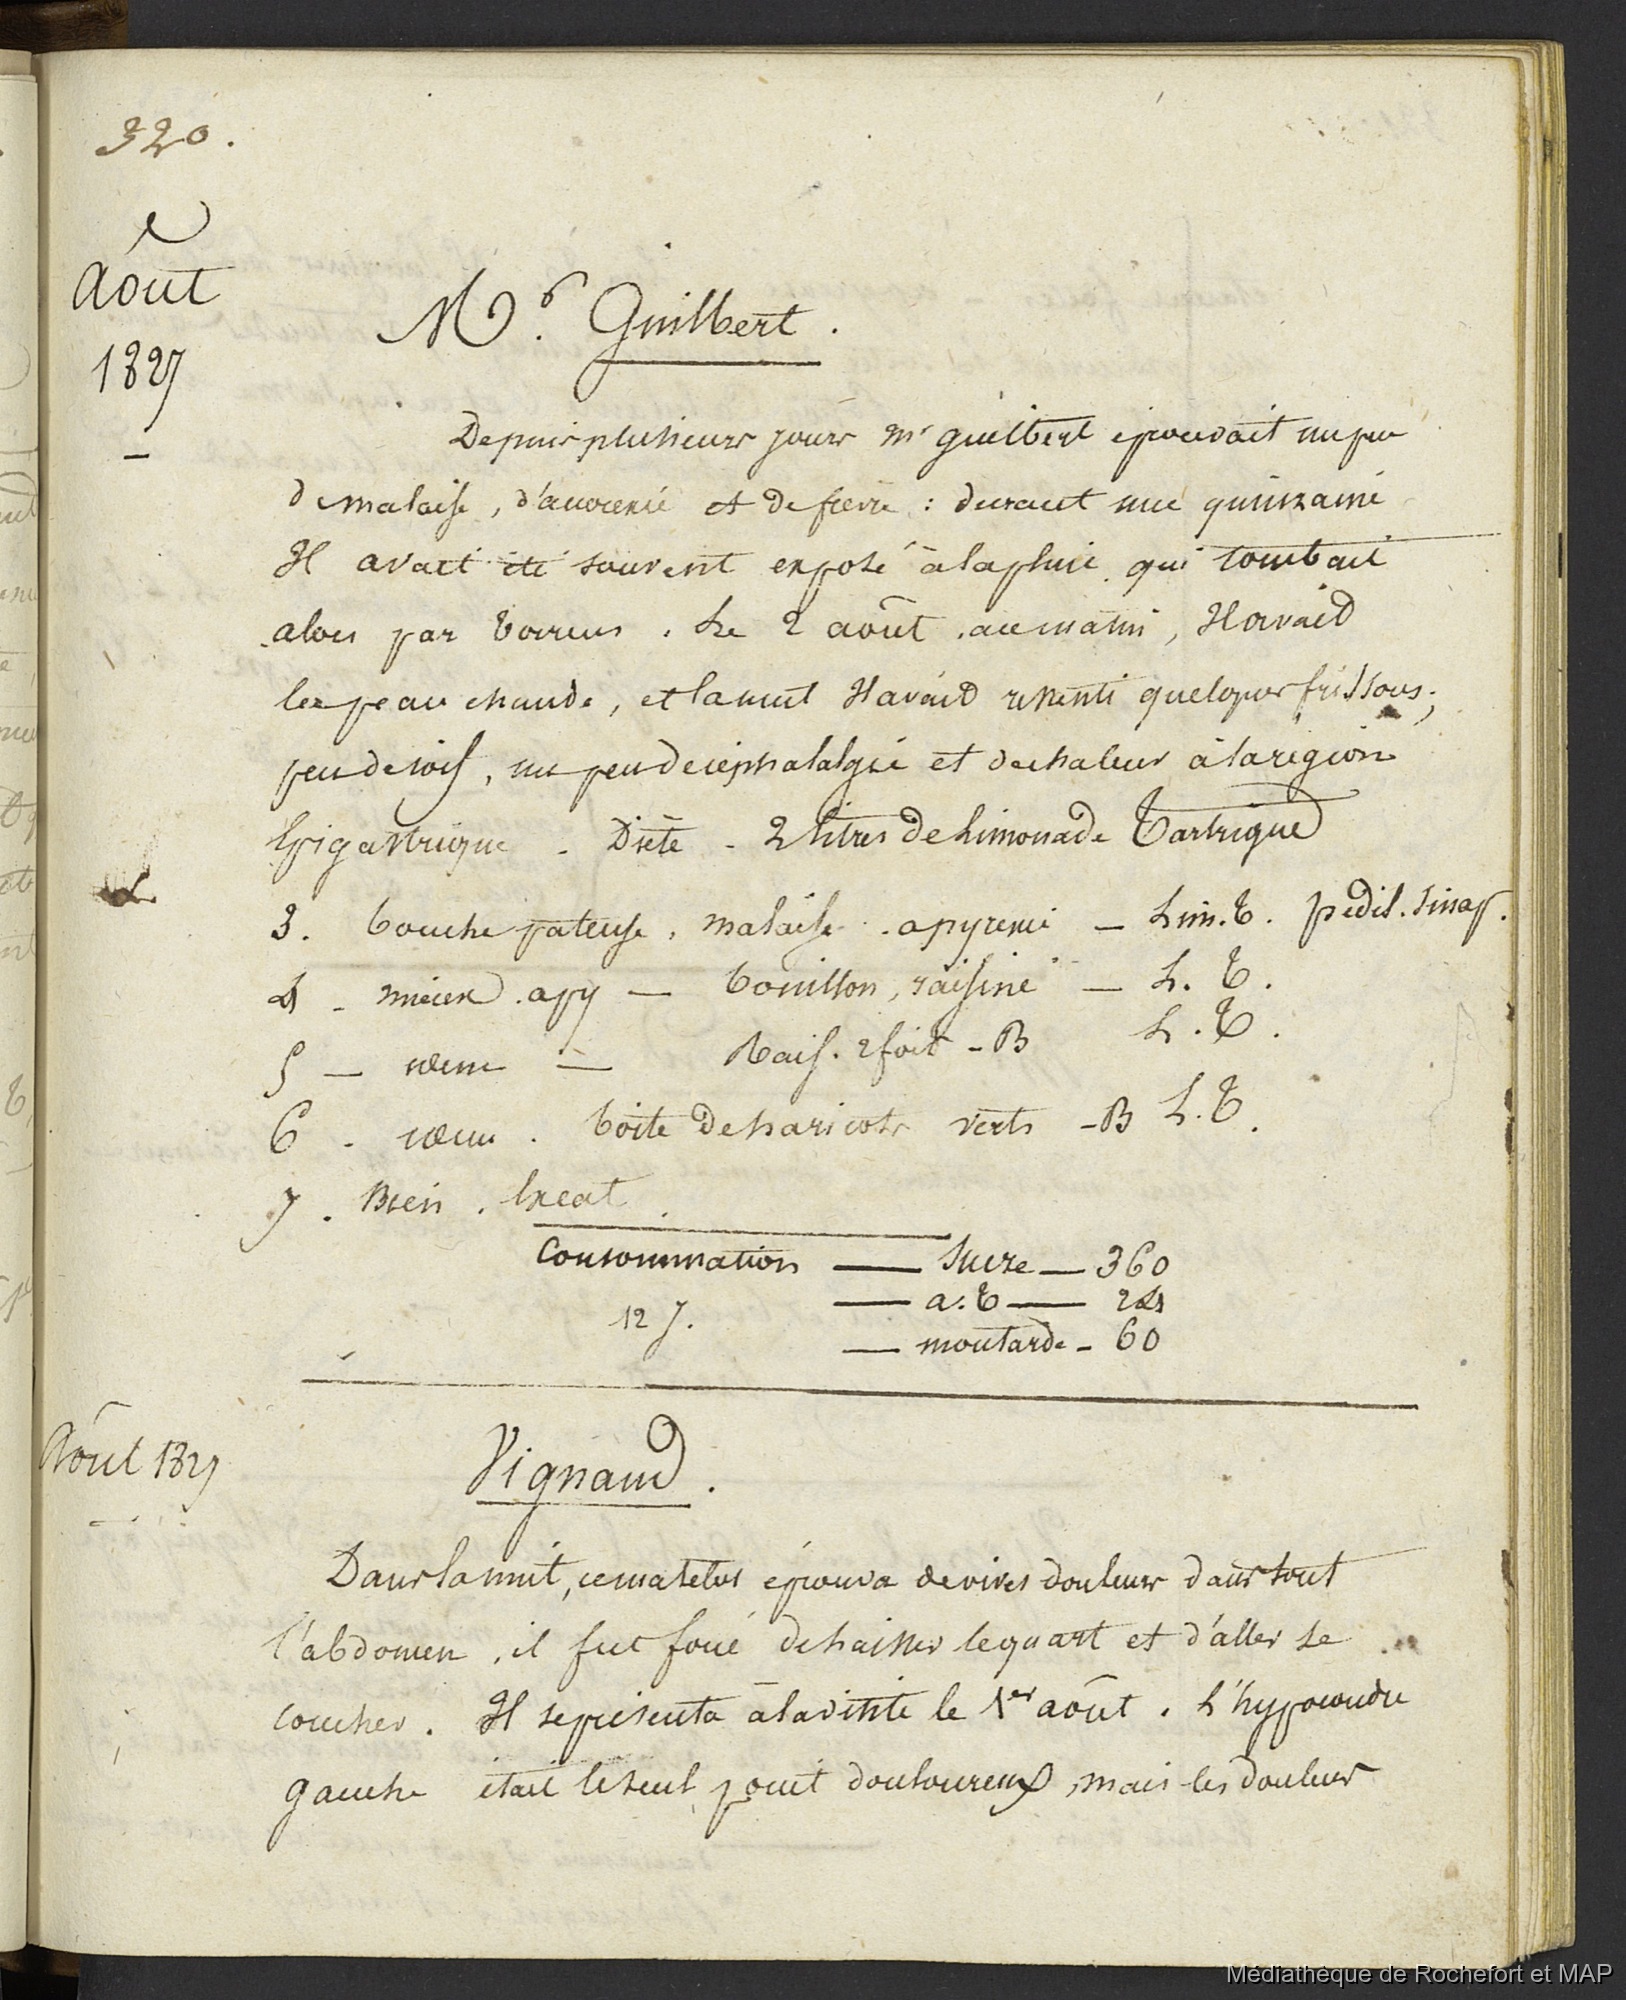 320.
Août
1827
Mr. Guilbert.
Depuis plusieurs jours mr guilbert éprouvait un peu
de malaise, d'anorexie et de fievre : durant une quinzaine
Il avait été souvent exposé à la pluie qui tombait
alors par torrens. Le 2 août au matin, Il avait
la peau chaude, et la nuit Il avait ressenti quelques frissons;
peu de soif, un peu de céphalalgie et de chaleur à la région
Epigastrique - Diète - 2 litres de Limonade Tartrique
3. bouche pateuse, malaise. apyrexie — Lim. T. pédil. sinap.
4 - mieux. apy — bouillon, raisiné — L. T.
5 — idem — Rais. 2 fois - B L. T.
6 - idem. boite de haricots verts - B L. T.
7. Bien. Exeat.
Consommation — Sucre — 360
— a. T — 24
12 j.
— moutarde - 60
Août 1827
Vignaud.
Dans la nuit, ce matelot éprouva de vives douleurs dans tout
l'abdomen, il fut forcé de laisser le quart et d'aller se
coucher. Il se présenta à la visite le 1er août. L'hypocondre
gauche était le seul point douloureux, mais les douleurs
Médiathèque de Rochefort et MAP